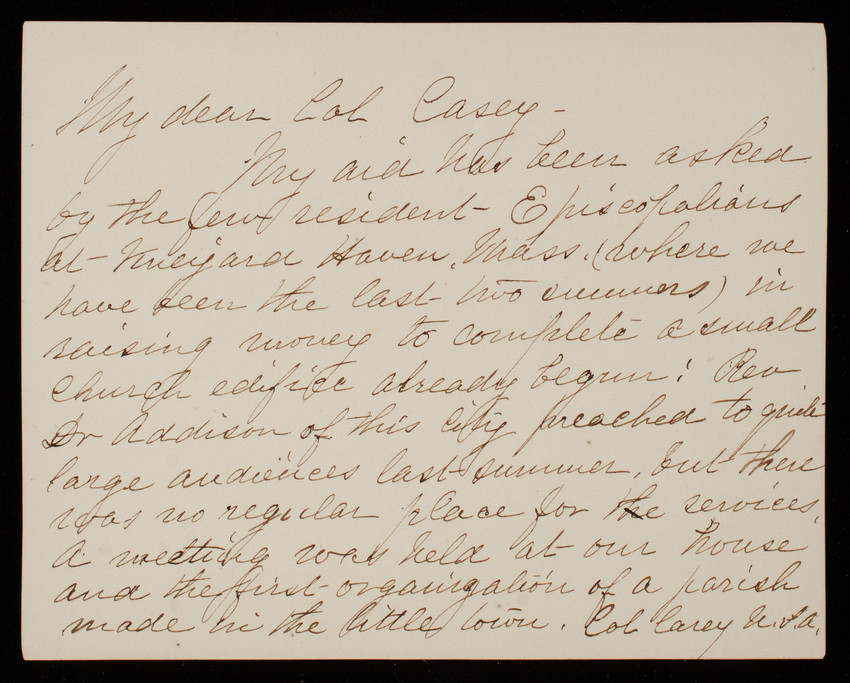 My dear Col Casey -
My aid has been asked
by the few resident - Episcopalians
at - Vineyard Haven, Mass. (where we
have been the last - two summers) in
raising money to complete a small
Church edifice already begun! Rev
Dr Addison of this City preached to quite
large audiences last summer, but there
was no regular place for the services,
A meeting was held at our house
and the first - organization of a parish
made in the little town. Col Casey U.S.A.